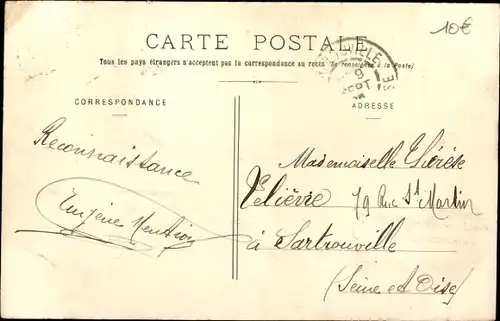 10€
CARTE POSTALE
Tous les pays étrangers n'acceptent pas la correspondance au recto (Se renseigner à la Poste)
CORRESPONDANCE
ADRESSE
9
SEPT
Reconnaissance
Eugène
Mademoiselle Thérèse
Lelièvre 79 Rue St Martin
à Sartrouville
(Seine et Oise)